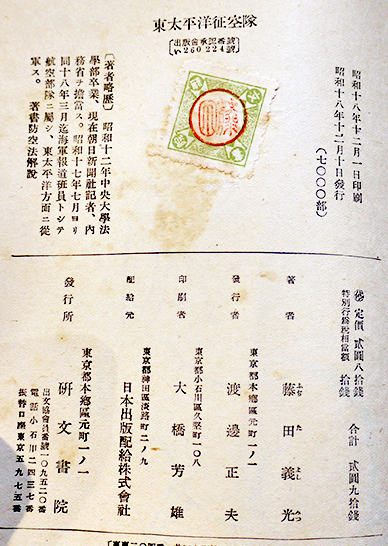 東太平洋征空隊
〔出版會承認番號
い260224號〕
昭和十八年十二月一日印刷
昭和十八年十二月十日發行
（七〇〇〇部）
〔著者略歴〕 昭和十二年中央大學法
學部卒業、現在朝日新聞社記者、内
務省ヲ擔當ス。昭和十七年七月ヨリ
同十八年三月迄海軍報道班員トシテ
航空部隊ニ屬シ、東太平洋方面ニ從
軍ス。 著書防空法解說
定價 貳圓八拾錢
特別行爲税相當額 拾錢
合計 貳圓九拾錢
著者 藤田義光
東京都本鄕區元町一ノ一
發行者 渡邊正夫
東京都小石川區久堅町一〇八
印刷者 大橋芳雄
東京都神田區淡路町二ノ九
配給元 日本出版配給株式會社
東京都本鄕區元町一ノ一
發行所 硏文書院
出文協會員番號一〇九五二〇番
電話小石川二四三七番
振替口座東京五九七五番